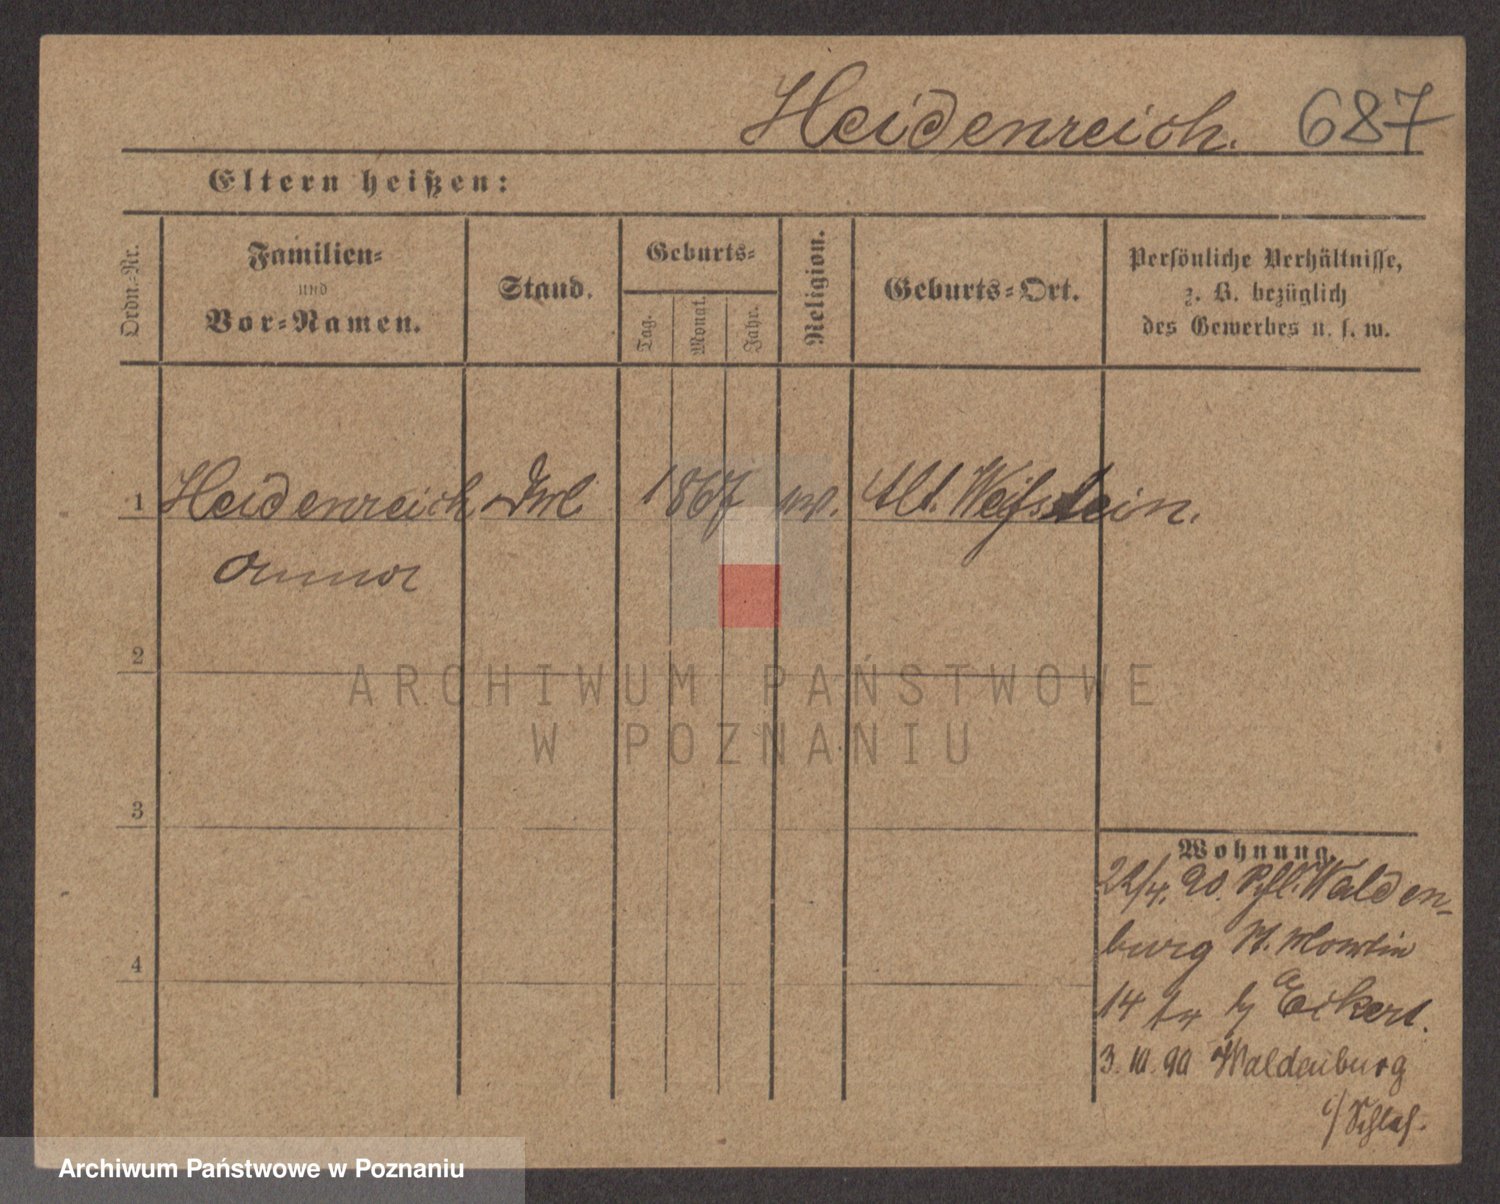 Heidenreich. 687
Eltern heißen:
Ordn.-Nr.
Familien-
und
Vor-Namen.
Stand.
Geburts-
Tag.
Monat.
Jahr.
Religion.
Geburts-Ort.
Persönliche Verhältnisse,
z. B. bezüglich
des Gewerbes u. s. w.
1 Heidenreich 1867 Alt. Weißstein.
Anna
2
ARCHIWUM PAŃSTWOWE
W POZNANIU
3
Wohnung.
22/4. 90. Walden-
burg St. Martin
14 Eckert.
4
3. 10. 90 Waldenburg
i/ Schles.
Archiwum Państwowe w Poznaniu